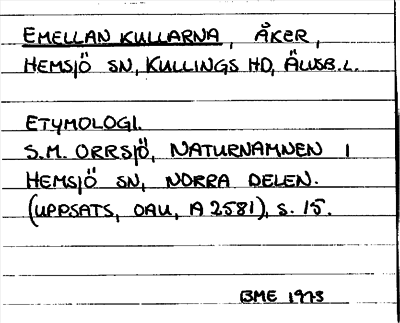 EMELLAN KULLARNA, ÅKER,
HEMSJÖ SN, KULLINGS HD, ÄLVSB.L.
ETYMOLOGI.
S.M. ORRSJÖ, NATURNAMNEN I
HEMSJÖ SN, NORRA DELEN.
(UPPSATS, OAU, A 2581), S. 15.
BME 1973